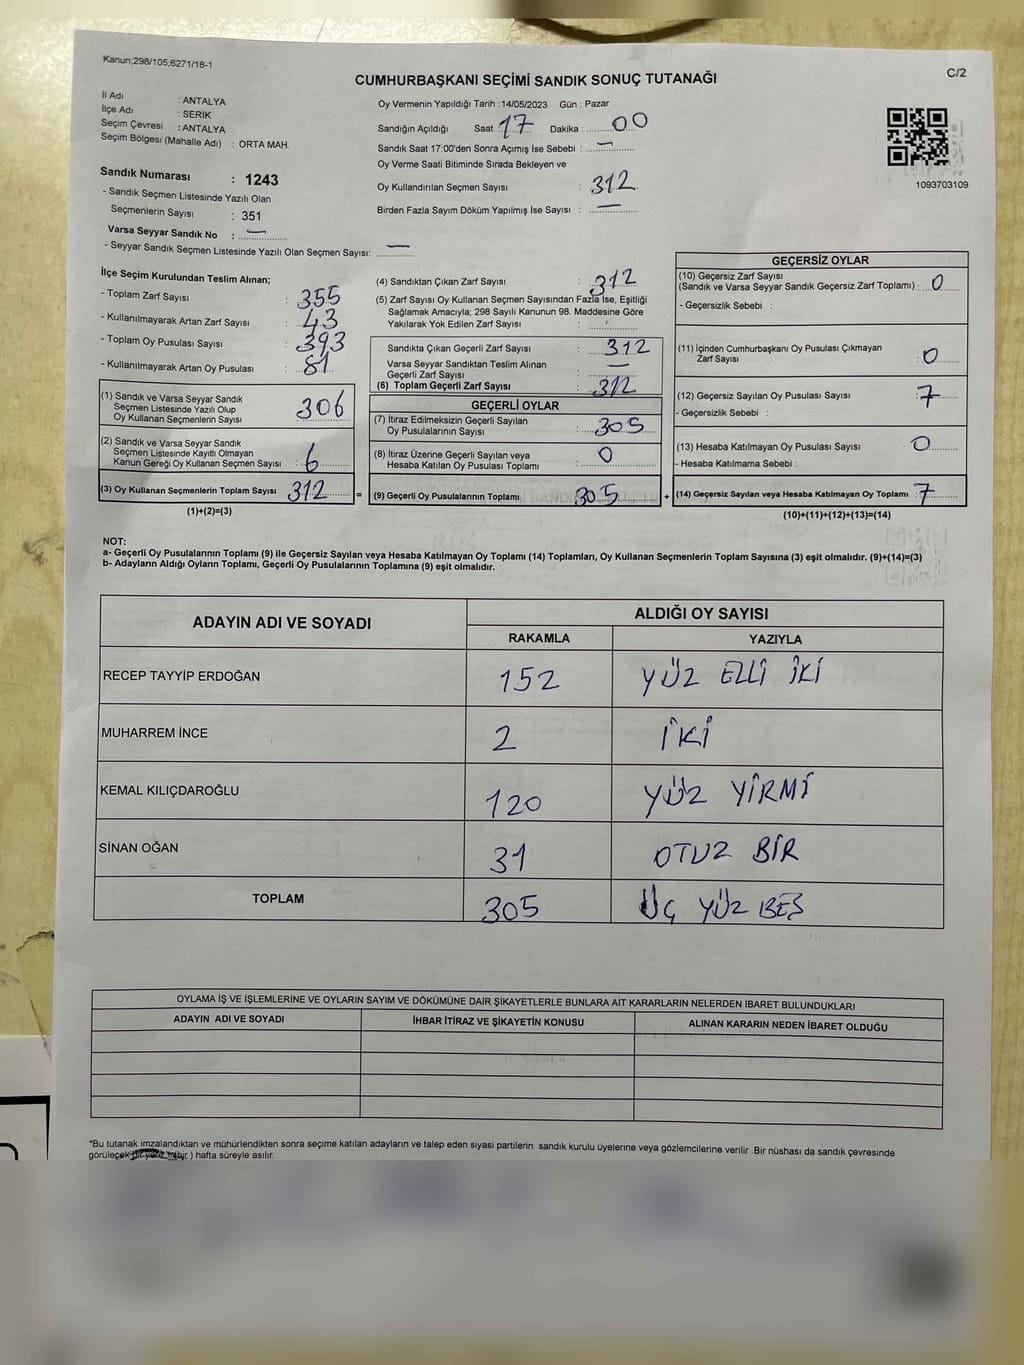 Kanun;298/105;6271/18-1
C/2
CUMHURBAŞKANI SEÇİMİ SANDIK SONUÇ TUTANAĞI
İl Adı : ANTALYA
İlçe Adı : SERİK
Seçim Çevresi : ANTALYA
Seçim Bölgesi (Mahalle Adı) : ORTA MAH.
Oy Vermenin Yapıldığı Tarih :14/05/2023 Gün : Pazar
Sandığın Açıldığı Saat 17 Dakika : 00
Sandık Saat 17:00'den Sonra Açımış İse Sebebi : —
Oy Verme Saati Bitiminde Sırada Bekleyen ve
Oy Kullandırılan Seçmen Sayısı : 312
Birden Fazla Sayım Döküm Yapılmış İse Sayısı : —
1093703109
Sandık Numarası : 1243
- Sandık Seçmen Listesinde Yazılı Olan
Seçmenlerin Sayısı : 351
Varsa Seyyar Sandık No : —
- Seyyar Sandık Seçmen Listesinde Yazılı Olan Seçmen Sayısı: —
İlçe Seçim Kurulundan Teslim Alınan;
- Toplam Zarf Sayısı : 355
- Kullanılmayarak Artan Zarf Sayısı : 43
- Toplam Oy Pusulası Sayısı : 393
- Kullanılmayarak Artan Oy Pusulası : 81
(1) Sandık ve Varsa Seyyar Sandık
Seçmen Listesinde Yazılı Olup
Oy Kullanan Seçmenlerin Sayısı 306
(2) Sandık ve Varsa Seyyar Sandık
Seçmen Listesinde Kayıtlı Olmayan
Kanun Gereği Oy Kullanan Seçmen Sayısı : 6
(3) Oy Kullanan Seçmenlerin Toplam Sayısı 312 =
(1)+(2)=(3)
(4) Sandıktan Çıkan Zarf Sayısı : 312
(5) Zarf Sayısı Oy Kullanan Seçmen Sayısından Fazla İse, Eşitliği
Sağlamak Amacıyla; 298 Sayılı Kanunun 98. Maddesine Göre
Yakılarak Yok Edilen Zarf Sayısı :
Sandıkta Çıkan Geçerli Zarf Sayısı : 312
Varsa Seyyar Sandıktan Teslim Alınan
Geçerli Zarf Sayısı : —
(6) Toplam Geçerli Zarf Sayısı : 312
GEÇERLİ OYLAR
(7) İtiraz Edilmeksizin Geçerli Sayılan
Oy Pusulalarının Sayısı : 305
(8) İtiraz Üzerine Geçerli Sayılan veya
Hesaba Katılan Oy Pusulası Toplamı : 0
(9) Geçerli Oy Pusulalarının Toplamı 305 +
GEÇERSİZ OYLAR
(10) Geçersiz Zarf Sayısı
(Sandık ve Varsa Seyyar Sandık Geçersiz Zarf Toplamı) : 0
- Geçersizlik Sebebi :
(11) İçinden Cumhurbaşkanı Oy Pusulası Çıkmayan
Zarf Sayısı : 0
(12) Geçersiz Sayılan Oy Pusulası Sayısı : 7
- Geçersizlik Sebebi :
(13) Hesaba Katılmayan Oy Pusulası Sayısı : 0
- Hesaba Katılmama Sebebi :
(14) Geçersiz Sayılan veya Hesaba Katılmayan Oy Toplamı : 7
(10)+(11)+(12)+(13)=(14)
NOT:
a- Geçerli Oy Pusulalarının Toplamı (9) ile Geçersiz Sayılan veya Hesaba Katılmayan Oy Toplamı (14) Toplamları, Oy Kullanan Seçmenlerin Toplam Sayısına (3) eşit olmalıdır. (9)+(14)=(3)
b- Adayların Aldığı Oyların Toplamı, Geçerli Oy Pusulalarının Toplamına (9) eşit olmalıdır.
ADAYIN ADI VE SOYADI ALDIĞI OY SAYISI
RAKAMLA YAZIYLA
RECEP TAYYİP ERDOĞAN 152 YÜZ ELLİ İKİ
MUHARREM İNCE 2 İKİ
KEMAL KILIÇDAROĞLU 120 YÜZ YİRMİ
SİNAN OĞAN 31 OTUZ BİR
TOPLAM 305 ÜÇ YÜZ BEŞ
OYLAMA İŞ VE İŞLEMLERİNE VE OYLARIN SAYIM VE DÖKÜMÜNE DAİR ŞİKAYETLERLE BUNLARA AİT KARARLARIN NELERDEN İBARET BULUNDUKLARI
ADAYIN ADI VE SOYADI İHBAR İTİRAZ VE ŞİKAYETİN KONUSU ALINAN KARARIN NEDEN İBARET OLDUĞU
*Bu tutanak imzalandıktan ve mühürlendikten sonra seçime katılan adayların ve talep eden siyasi partilerin sandık kurulu üyelerine veya gözlemcilerine verilir .Bir nüshası da sandık çevresinde
görülecek (bir ) hafta süreyle asılır.